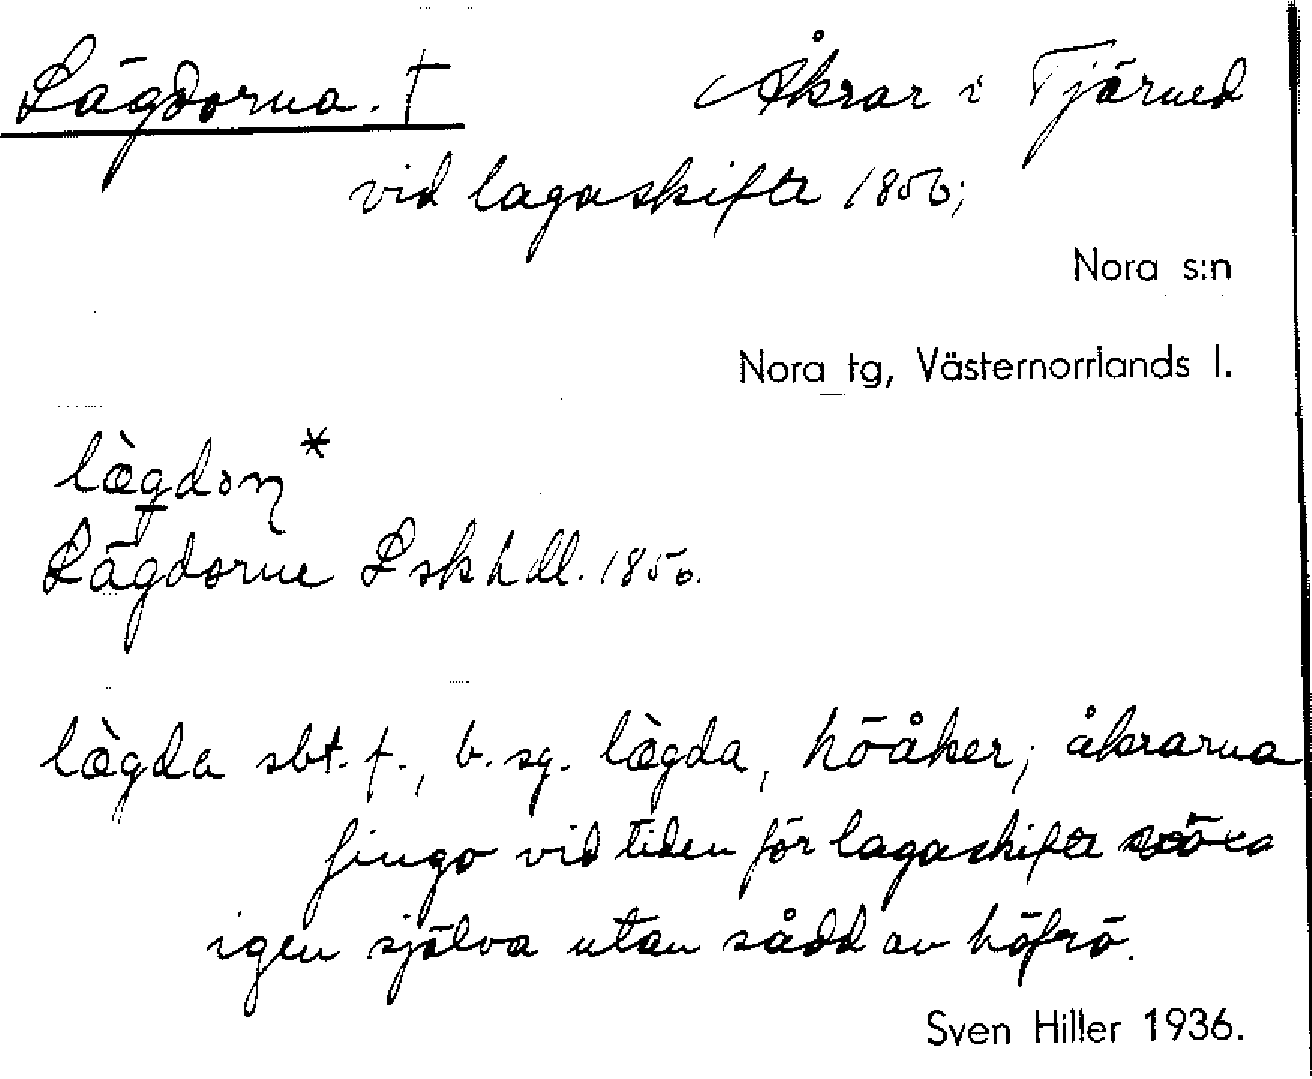 Lägdorna. †
Åkrar i Tjärned
vid lagaskifte 1856;
Nora s:n
Nora tg, Västernorrlands l.
lὰgdoɳ*
Lägdorne Lskhdl. 1856.
lægda sbt. f., b. sg. lægda, höåker; åkrarna
fingo vid tiden för lagaskifte växa
igen själva utan sådd av höfrö.
Sven Hiller 1936.